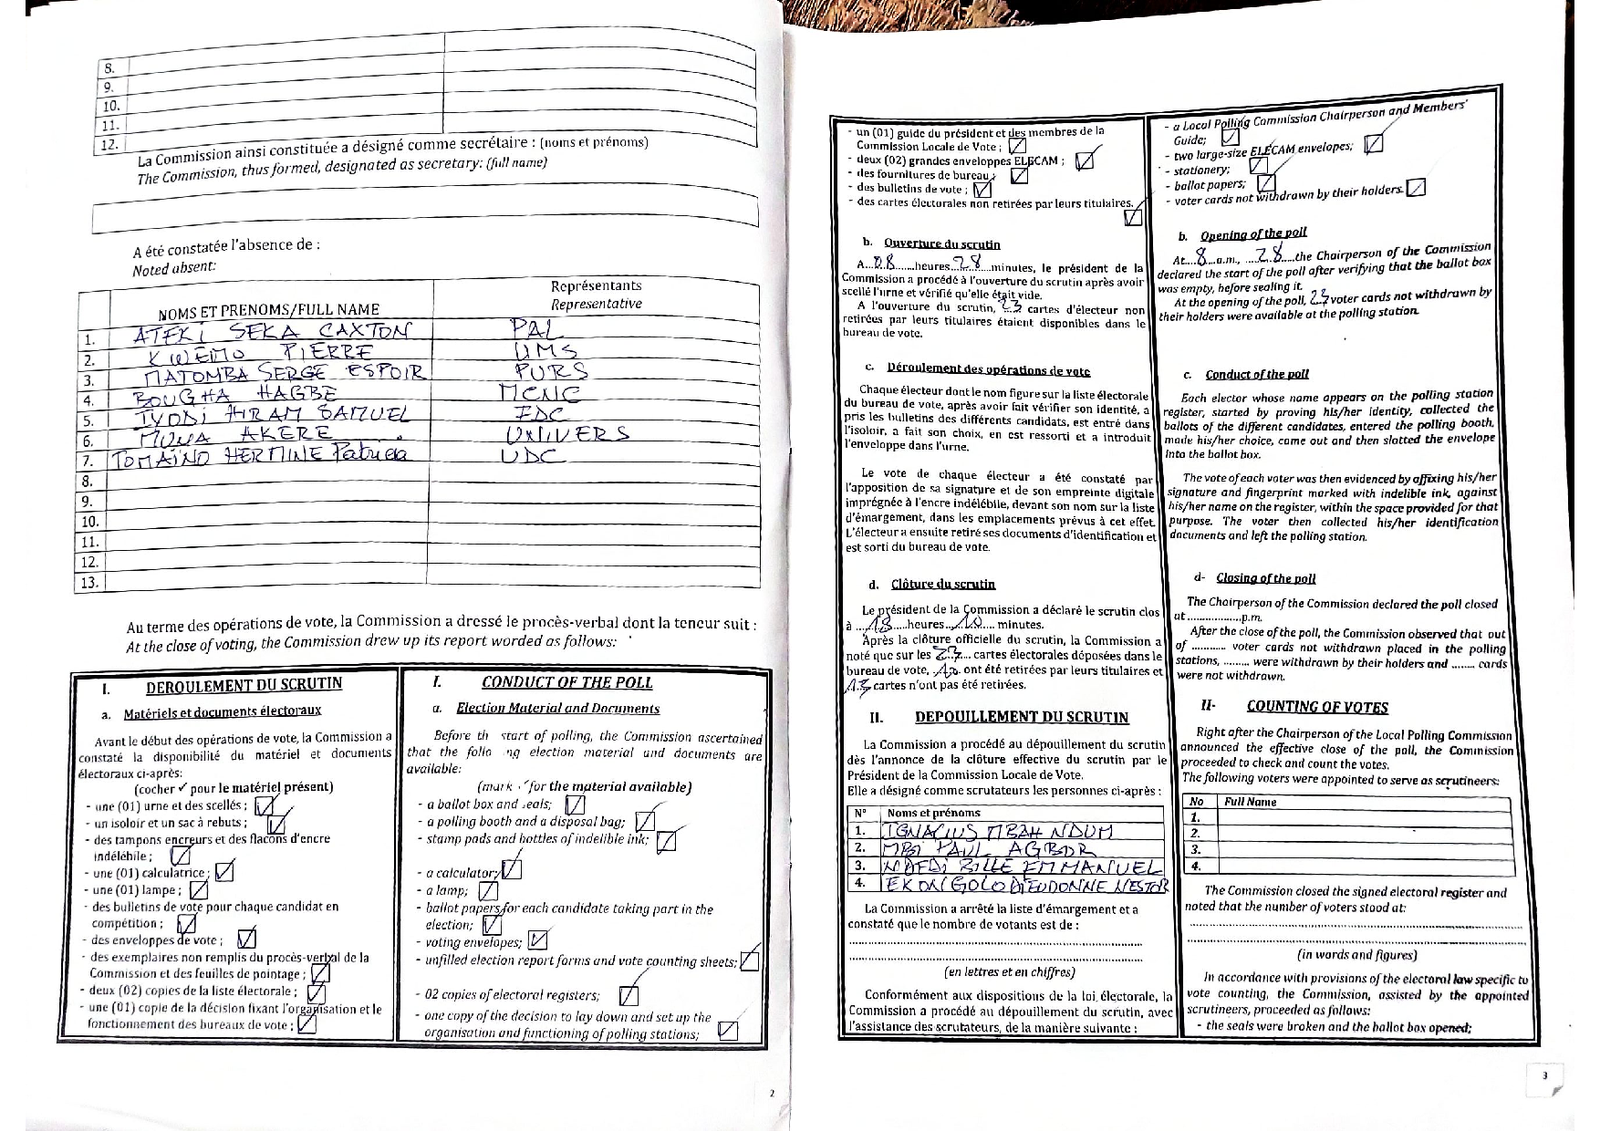 8.
9.
10.
11.
12.
La Commission ainsi constituée a désigné comme secrétaire : (noms et prénoms)
The Commission, thus formed, designated as secretary: (full name)
A été constatée l'absence de :
Noted absent:
NOMS ET PRENOMS/FULL NAME
Représentants
Representative
1. ATEKI SEKA CAXTON PAL
2. KWEMO PIERRE UMS
3. MATOMBA SERGE ESPOIR PURS
4. BOUGHA HAGBE MCNC
5. IYODI HIRAM SAMUEL FDC
6. MUNA AKERE UNIVERS
7. TOMAÏNO HERMINE Patricia UDC
8.
9.
10.
11.
12.
13.
Au terme des opérations de vote, la Commission a dressé le procès-verbal dont la teneur suit :
At the close of voting, the Commission drew up its report worded as follows:
I. DEROULEMENT DU SCRUTIN
a. Matériels et documents électoraux
Avant le début des opérations de vote, la Commission a
constaté la disponibilité du matériel et documents
électoraux ci-après:
(cocher ✓ pour le matériel présent)
- une (01) urne et des scellés ;
- un isoloir et un sac à rebuts ;
- des tampons encreurs et des flacons d'encre
indélébile ;
- une (01) calculatrice ;
- une (01) lampe ;
- des bulletins de vote pour chaque candidat en
compétition ;
- des enveloppes de vote ;
- des exemplaires non remplis du procès-verbal de la
Commission et des feuilles de pointage ;
- deux (02) copies de la liste électorale ;
- une (01) copie de la décision fixant l'organisation et le
fonctionnement des bureaux de vote ;
I. CONDUCT OF THE POLL
a. Election Material and Documents
Before th start of polling, the Commission ascertained
that the follo ng election material and documents are
available:
(mark for the material available)
- a ballot box and seals;
- a polling booth and a disposal bag;
- stamp pads and bottles of indelible ink;
- a calculator;
- a lamp;
- ballot papers for each candidate taking part in the
election;
- voting envelopes;
- unfilled election report forms and vote counting sheets;
- 02 copies of electoral registers;
- one copy of the decision to lay down and set up the
organisation and functioning of polling stations;
2
- un (01) guide du président et des membres de la
Commission Locale de Vote ;
- deux (02) grandes enveloppes ELECAM ;
- des fournitures de bureau ;
- des bulletins de vote ;
- des cartes électorales non retirées par leurs titulaires.
b. Ouverture du scrutin
A...08......heures..28....minutes, le président de la
Commission a procédé à l'ouverture du scrutin après avoir
scellé l'urne et vérifié qu'elle était vide.
A l'ouverture du scrutin, 23 cartes d'électeur non
retirées par leurs titulaires étaient disponibles dans le
bureau de vote.
c. Déroulement des opérations de vote
Chaque électeur dont le nom figure sur la liste électorale
du bureau de vote, après avoir fait vérifier son identité, a
pris les bulletins des différents candidats, est entré dans
l'isoloir, a fait son choix, en est ressorti et a introduit
l'enveloppe dans l'urne.
Le vote de chaque électeur a été constaté par
l'apposition de sa signature et de son empreinte digitale
imprégnée à l'encre indélébile, devant son nom sur la liste
d'émargement, dans les emplacements prévus à cet effet.
L'électeur a ensuite retiré ses documents d'identification et
est sorti du bureau de vote.
d. Clôture du scrutin
Le président de la Commission a déclaré le scrutin clos
à ....18.....heures...10.... minutes.
Après la clôture officielle du scrutin, la Commission a
noté que sur les 23.... cartes électorales déposées dans le
bureau de vote, 10. ont été retirées par leurs titulaires et
13 cartes n'ont pas été retirées.
II. DEPOUILLEMENT DU SCRUTIN
La Commission a procédé au dépouillement du scrutin
dès l'annonce de la clôture effective du scrutin par le
Président de la Commission Locale de Vote.
Elle a désigné comme scrutateurs les personnes ci-après :
N° Noms et prénoms
1. IGNACIUS MBAH NDUM
2. MBI PAUL AGBOR
3. NDEDI BILLE EMMANUEL
4. EKONGOLO DIEUDONNE NESTOR
La Commission a arrêté la liste d'émargement et a
constaté que le nombre de votants est de :
(en lettres et en chiffres)
Conformément aux dispositions de la loi électorale, la
Commission a procédé au dépouillement du scrutin, avec
l'assistance des scrutateurs, de la manière suivante :
- a Local Polling Commission Chairperson and Members'
Guide;
- two large-size ELECAM envelopes;
- stationery;
- ballot papers;
- voter cards not withdrawn by their holders.
b. Opening of the poll
At...8...a.m., ....28....the Chairperson of the Commission
declared the start of the poll after verifying that the ballot box
was empty, before sealing it.
At the opening of the poll, 23 voter cards not withdrawn by
their holders were available at the polling station.
c. Conduct of the poll
Each elector whose name appears on the polling station
register, started by proving his/her identity, collected the
ballots of the different candidates, entered the polling booth,
made his/her choice, came out and then slotted the envelope
into the ballot box.
The vote of each voter was then evidenced by affixing his/her
signature and fingerprint marked with indelible ink, against
his/her name on the register, within the space provided for that
purpose. The voter then collected his/her identification
documents and left the polling station.
d- Closing of the poll
The Chairperson of the Commission declared the poll closed
at ..................p.m.
After the close of the poll, the Commission observed that out
of ........... voter cards not withdrawn placed in the polling
stations, ......... were withdrawn by their holders and ........ cards
were not withdrawn.
II- COUNTING OF VOTES
Right after the Chairperson of the Local Polling Commission
announced the effective close of the poll, the Commission
proceeded to check and count the votes.
The following voters were appointed to serve as scrutineers:
No Full Name
1.
2.
3.
4.
The Commission closed the signed electoral register and
noted that the number of voters stood at:
(in words and figures)
In accordance with provisions of the electoral law specific to
vote counting, the Commission, assisted by the appointed
scrutineers, proceeded as follows:
- the seals were broken and the ballot box opened;
3